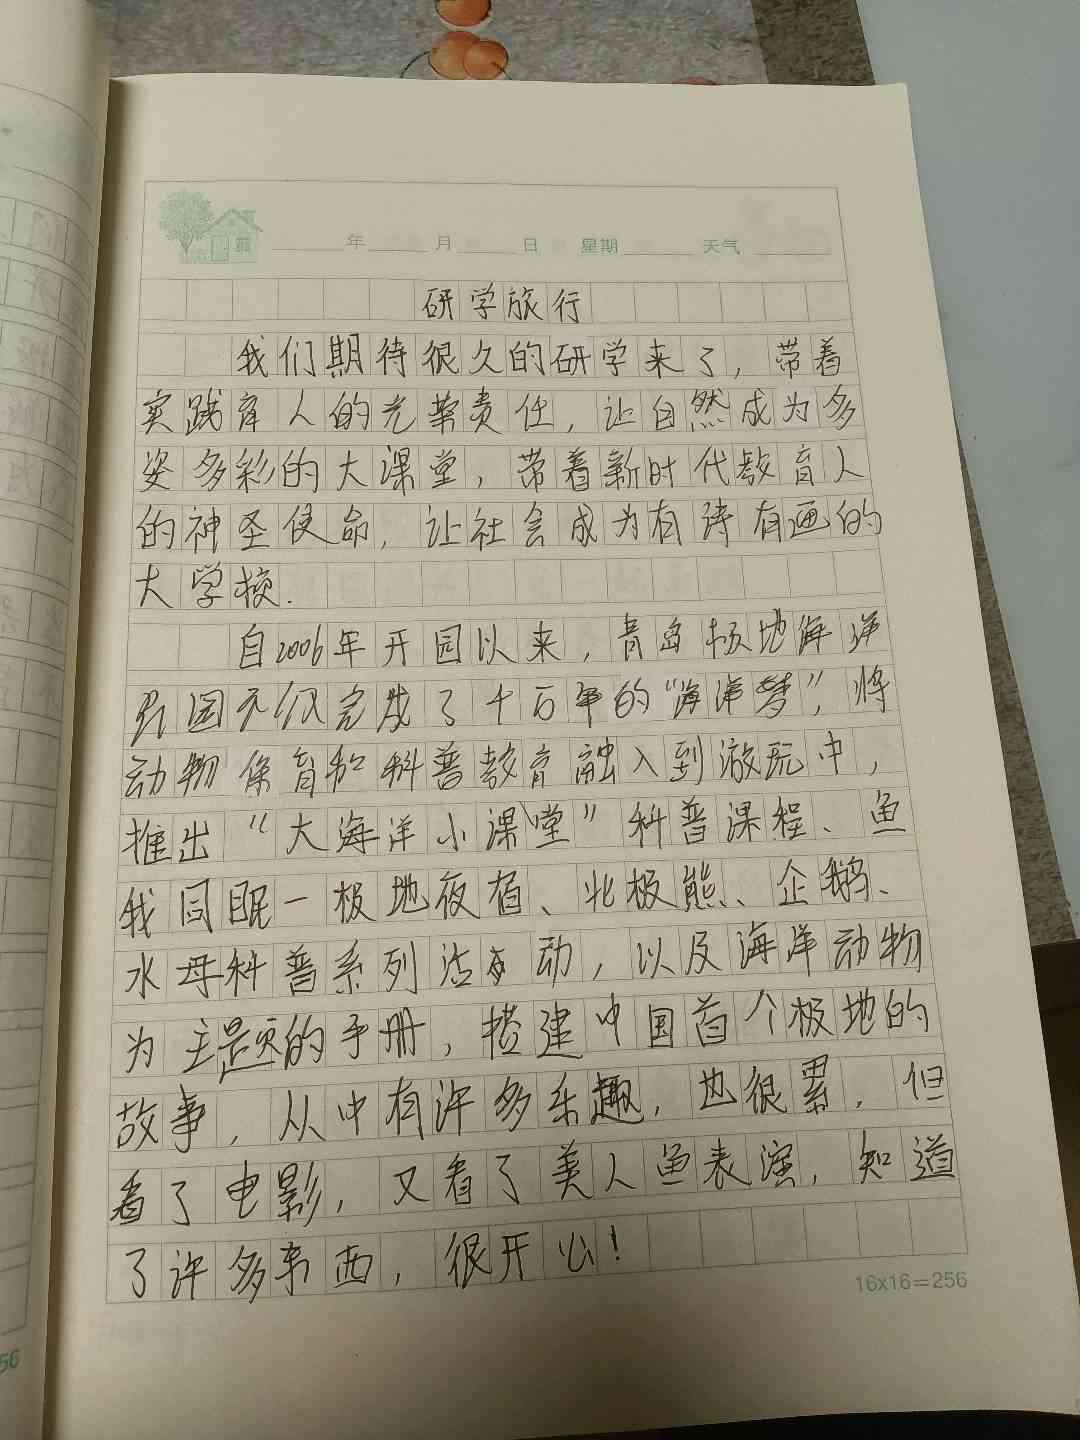 年 月 日 星期 天气
研学旅行
我们期待很久的研学来了，带着
实践育人的光荣责任，让自然成为多
姿多彩的大课堂，带着新时代教育人
的神圣使命，让社会成为有诗有画的
大学校.
自2006年开园以来，青岛极地海洋
公园不仅完成了千万年的“海洋梦”，将
动物保育和科普教育融入到游玩中，
推出“大海洋小课堂”科普课程、鱼
我同眠一极地夜宿、北极熊、企鹅、
水母科普系列活动，以及海洋动物
为主题的手册，搭建中国首个极地的
故事，从中有许多乐趣，也很累，但
看了电影，又看了美人鱼表演，知道
了许多东西，很开心！
16x16=256
56